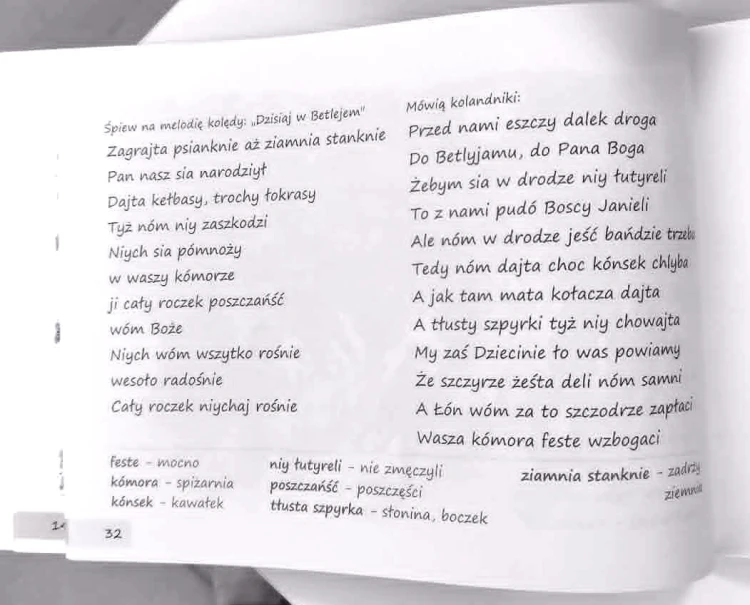 Śpiew na melodię kolędy: „Dzisiaj w Betlejem"
Zagrajta psianknie aż ziamnia stanknie
Pan nasz sia narodziył
Dajta kełbasy, trochy łokrasy
Tyż nóm niy zaszkodzi
Niych sia pómnoży
w waszy kómorze
ji cały roczek poszczańść
wóm Boże
Niych wóm wszytko rośnie
wesoło radośnie
Cały roczek niychaj rośnie
Mówią kolandniki:
Przed nami eszczy dalek droga
Do Betlyjamu, do Pana Boga
Żebym sia w drodze niy łutyreli
To z nami pudó Boscy Janieli
Ale nóm w drodze jeść bańdzie trzeba
Tedy nóm dajta choc kónsek chlyba
A jak tam mata kołacza dajta
A tłusty szpyrki tyż niy chowajta
My zaś Dziecinie ło was powiamy
Że szczyrze żeśta deli nóm samni
A Łón wóm za to szczodrze zapłaci
Wasza kómora feste wzbogaci
feste - mocno
kómora - spiżarnia
kónsek - kawałek
niy łutyreli - nie zmęczyli
poszczańść - poszczęści
tłusta szpyrka - słonina, boczek
ziamnia stanknie - zadrży
ziemnia
32